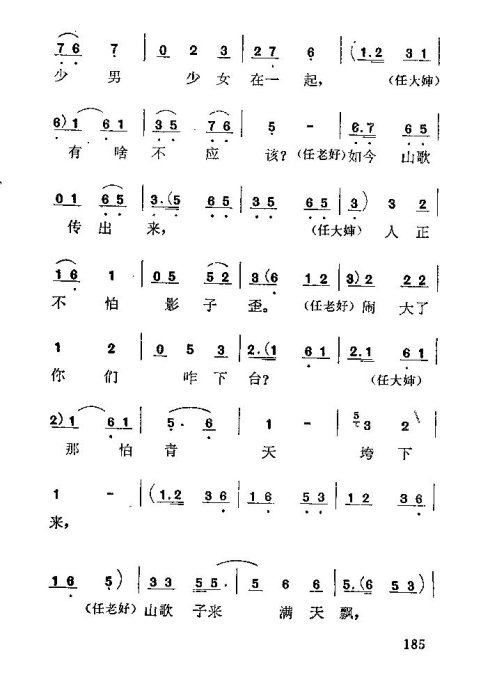 7 6 7 | 0 2 3 | 2 7 6 | (1.2 3 1 |
少 男 少 女 在 一 起， (任大婶)
6) 1 6 1 | 3 5 7 6 | 5 - | 6.7 6 5 |
有 啥 不 应 该？ (任老好) 如今 山歌
0 1 6 5 | 3.(5 6 5 | 3 5 6 5 | 3) 3 2 |
传 出 来， (任大婶) 人 正
1 6 1 | 0 5 5 2 | 3 (6 1 2 | 3) 2 2 2 |
不 怕 影 子 歪。 (任老好) 闹 大 了
1 2 | 0 5 3 | 2.(1 6 1 | 2.1 6 1 |
你 们 咋 下 台？ (任大婶)
2) 1 6 1 | 5. 6 | 1 - | 5 3 2 |
那 怕 青 天 垮 下
1 - | (1.2 3 6 | 1 6 5 3 | 1 2 3 6 |
来，
1 6 5) | 3 3 5 5. | 5 6 6 | 5.(6 5 3) |
(任老好) 山歌 子来 满 天 飘，
185